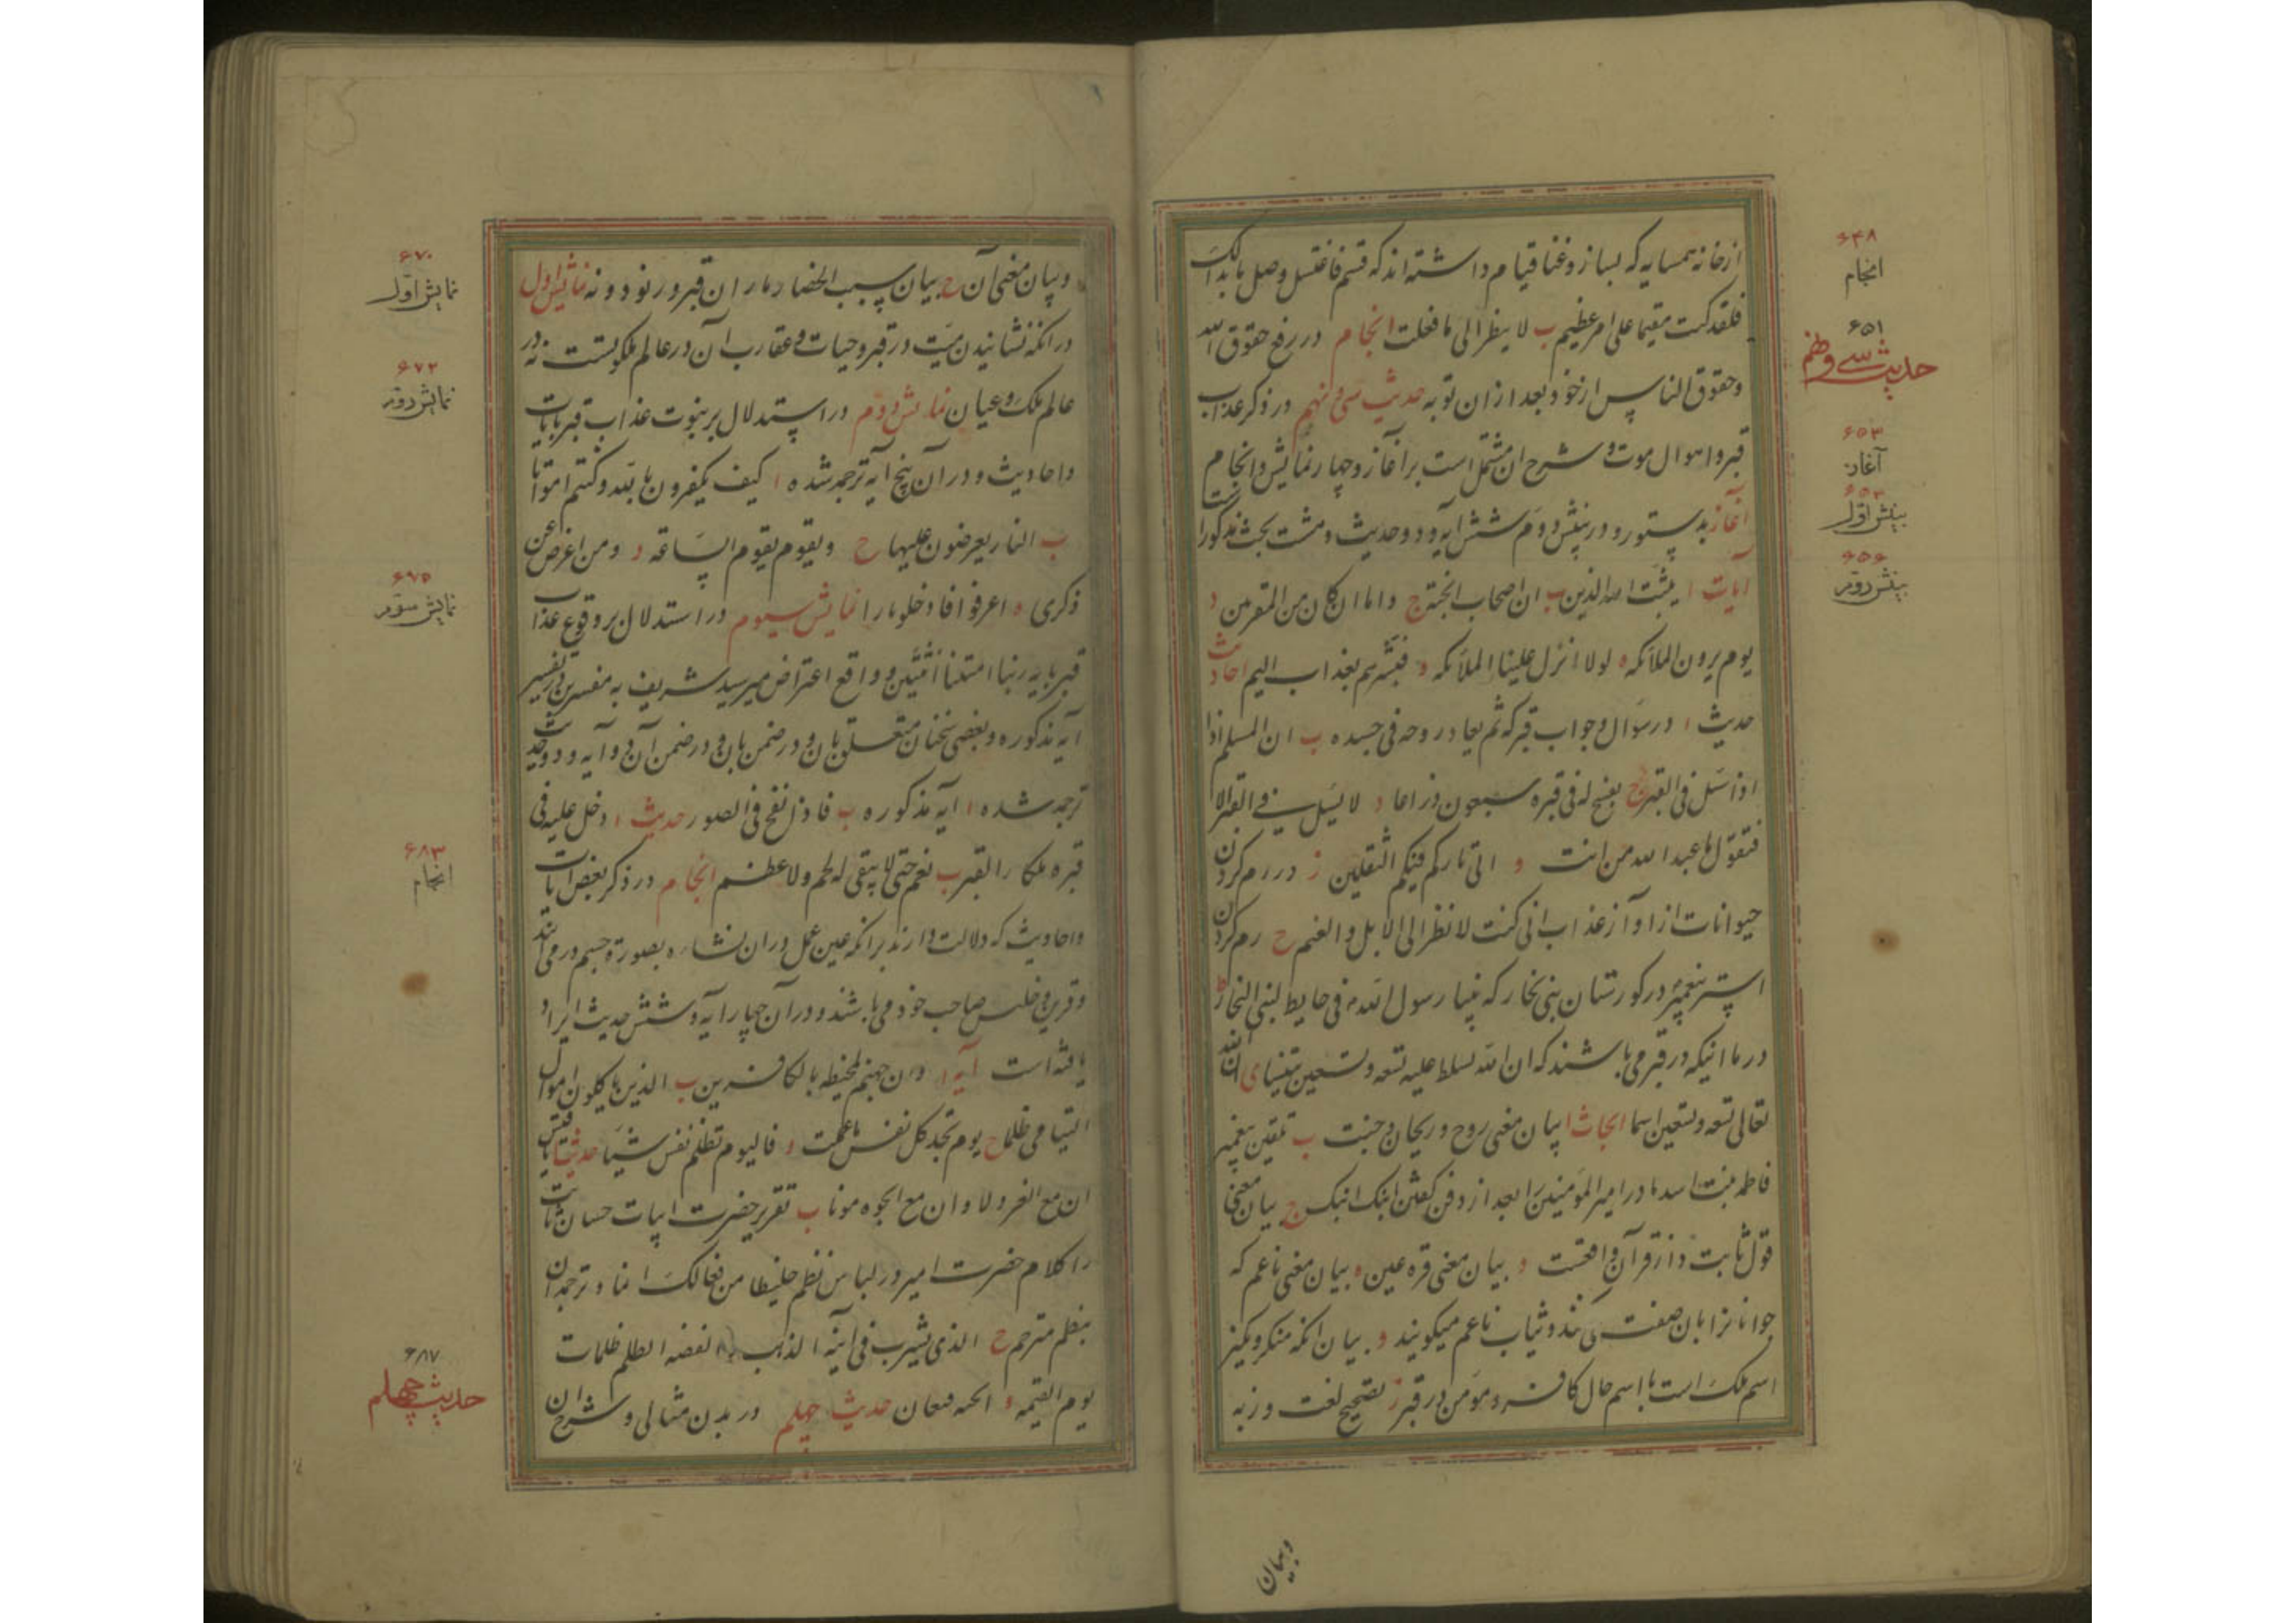 از خانه همسایه که بساز و غنا قیام داشته اند که قسم فاغتسل وصل ما بدا لک
فلقد کنت مقیما علی امر عظیم ب لا ینظر الی ما فعلت انجام در رفع حقوق الله
وحقوق الناس از خود بعد از ان توبه حدیث سی و نهم در ذکر عذاب
قبر و اهوال موت و شرح ان مشتمل است بر آغاز و چهار نمایش و انجام
آغاز بدستور و در بینش دوم شش آیه و دو حدیث و هشت بحث مذکور است
آیات ا یثبت الله الذین ب ان اصحاب الجنة ج واما ان کان من المقربین د
یوم یرون الملائکه ه لولا انزل علینا الملائکه و فبشرهم بعذاب الیم احادیث
حدیث ا در سؤال و جواب قبر که ثم یعاد روحه فی جسده ب ان المسلم اذا
اذا سئل فی القبر ج یفسح له فی قبره سبعون ذراعا د لا یسئل فی القبر الا
فتقول ها عبد الله من انت و انی تارک فیکم الثقلین ز در رم کردن
حیوانات از اواز عذاب انی کنت لانظر الی الابل والغنم ح رم کردن
استر پیغمبر در کورستان بنی نجار که بینا رسول الله فی حایط لبنی النجار ط
در ما انیکه در قبر می باشند که ان الله یسلط علیه تسعه وتسعین تنینا ی ان لله
تعالی تسعه وتسعین اسما ابحاث ا بیان معنی روح و ریحان و جنت ب تلقین پیغمبر
فاطمه بنت اسد مادر امیر المؤمنین را بعد از دفن کفتن ابنک ابنک ج بیان معنی
قول ثابت در قرآن واقعست د بیان معنی قره عین ه بیان معنی ناعم که
جوانان را بان صفت می کنند و ثیاب ناعم میکویند و بیان انکه منکر و نکیر
اسم ملک است یا اسم حال کافر و مؤمن در قبر ز تصحیح لغت وزبه
وبیان
۶۴۸
انجام
۶۵۱
حدیث سی و نهم
۶۵۳
آغاز
۶۵۳
بینش اول
۶۵۶
بینش دوم
وبیان معنی آن ح بیان سبب انحصار ماران قبر در نود و نه نمایش اول
در انکه نشانیدن میت در قبر و حیات و عقارب آن در عالم ملکوتست نه در
عالم ملک و عیان نمایش دوم در استدلال بر ثبوت عذاب قبر بایات
واحادیث و در آن پنج آیه ترجمه شده ا کیف تکفرون بالله وکنتم امواتا
ب النار یعرضون علیها ج ویقوم یقوم الساعة د ومن اعرض عن
ذکری ه اغرقوا فادخلوا نارا نمایش سیوم در استدلال بر وقوع عذاب
قبر بایه ربنا امتنا اثنتین و واقع اعتراض میر سید شریف به مفسرین در تفسیر
آیه مذکوره و بعضی سخنان متعلق بان و در ضمن بان و در ضمن آن دو آیه و دو حدیث
ترجمه شده ا آیه مذکوره ب فاذا نفخ فی الصور حدیث ا دخل علیه فی
قبره ملکا القبر ب نعم حتی لا یبقی له لحم ولا عظم انجام در ذکر بعض آیات
واحادیث که دلالت دارند بر انکه عین عمل در ان نشاه بصورة جسم در می آیند
و قرین و جلیس صاحب خود می باشند و در آن چهار آیه و شش حدیث ایراد
یافته است آیه ا وان جهنم لمحیطة بالکافرین ب الذین یاکلون اموال
الیتامی ظلما ج یوم تجد کل نفس ما عملت د فالیوم لا تظلم نفس شیئا حدیث ا یا قیس
ان مع العز ذلا وان مع الحیوة موتا ب تقریر حضرت ابیات حسان ثابت
را کلام حضرت امیر در لباس نظم خلیطا من فعالک انما و ترجمه ان
بنظم مترجم ج الذی یشرب فی انیة الذهب الظلم ظلمات
یوم القیمه و الجنه قیعان حدیث چهلم در بدن مثالی و شرح ان
۶۷۰
نمایش اول
۶۷۲
نمایش دوم
۶۷۵
نمایش سوم
۶۸۳
انجام
۶۸۷
حدیث چهلم